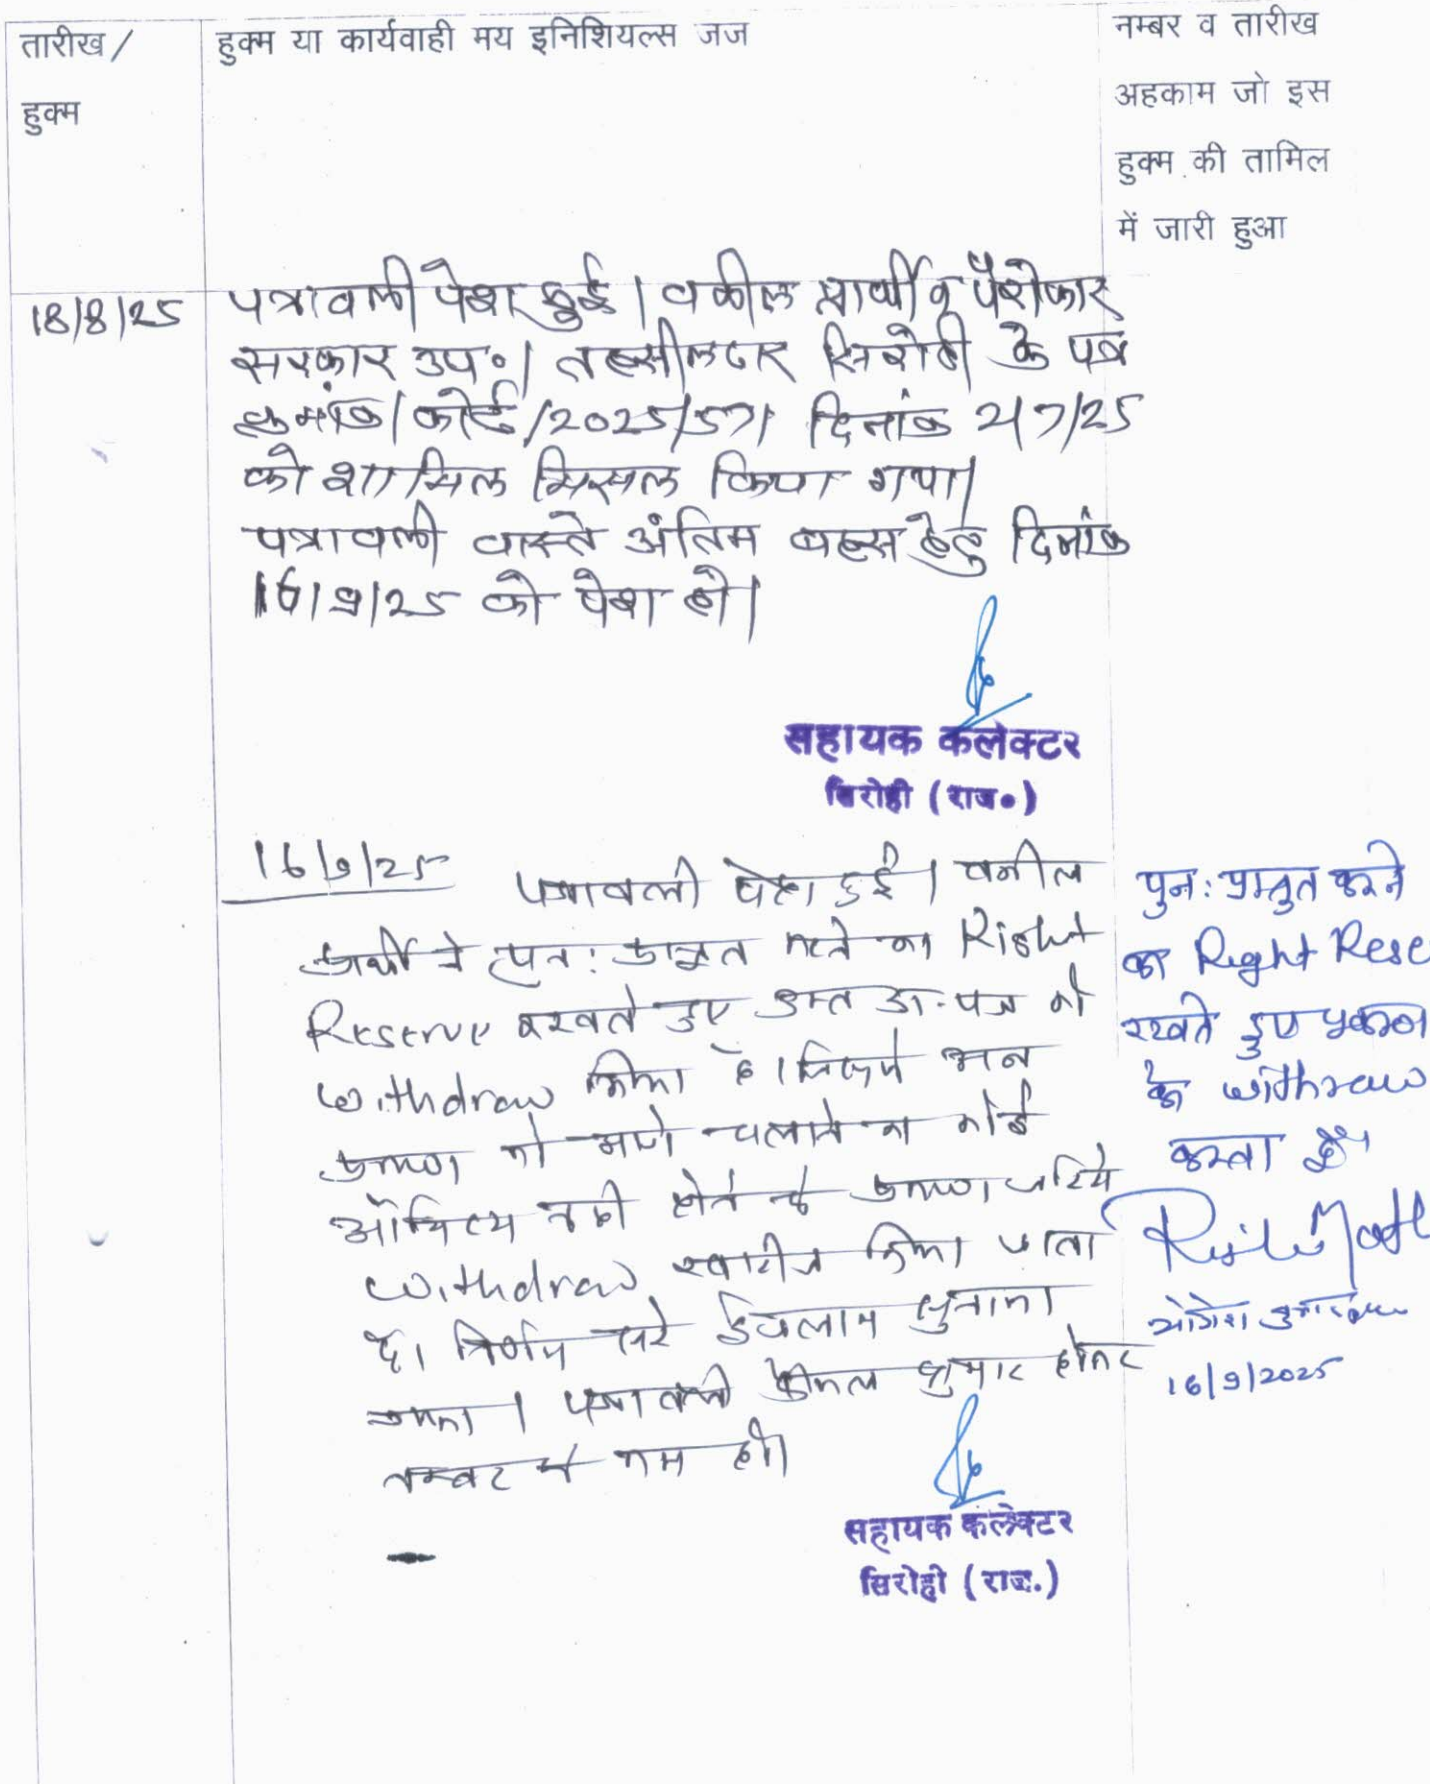 तारीख/
हुक्म
हुक्म या कार्यवाही मय इनिशियल्स जज
नम्बर व तारीख
अहकाम जो इस
हुक्म की तामिल
में जारी हुआ
18/8/25
पत्रावली पेश हुई। वकील प्रार्थी व पैरोकार
सरकार उप॰। तहसीलदार सिरोही के पत्र
क्रमांक/कोर्ट/2025/571 दिनांक 2/7/25
को शामिल मिसल किया गया।
पत्रावली वास्ते अंतिम बहस हेतु दिनांक
16/9/25 को पेश हो।
सहायक कलेक्टर
सिरोही (राज॰)
16/9/25 पत्रावली पेश हुई। वकील
प्रार्थी ने पुन: प्रस्तुत करने का Right
Reserve रखते हुए उक्त प्रा.पत्र को
withdraw किया है। जिससे अब
प्रकरण को आगे चलाने का कोई
औचित्य नही होने से प्रकरण जरिये
withdraw खारीज किया जाता
है। निर्णय सरे इजलास सुनाया
गया। पत्रावली फैसल शुमार होकर
नम्बर से कम हो।
सहायक कलेक्टर
सिरोही (राज.)
पुन: प्रस्तुत करने
का Right Rese
रखते हुए प्रकरण
को withraw
करता हूँ।
योगेश
16/9/2025